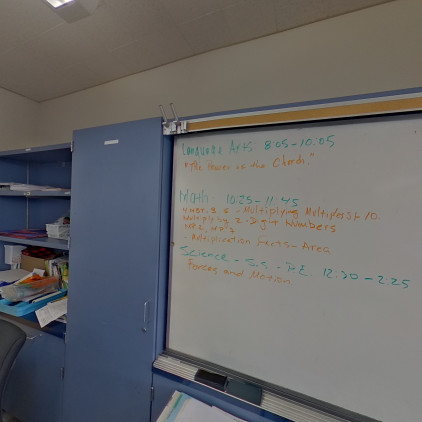 Language Arts 8:05-10:05
"The Power of the
Math 10:25-11:45
- Multiplying Multiples of 10.
Multiplying 2-Digit Numbers
- Multiplication Facts - Area
Science - S.S. - P.E. 12:30-2:25
Forces and Motion